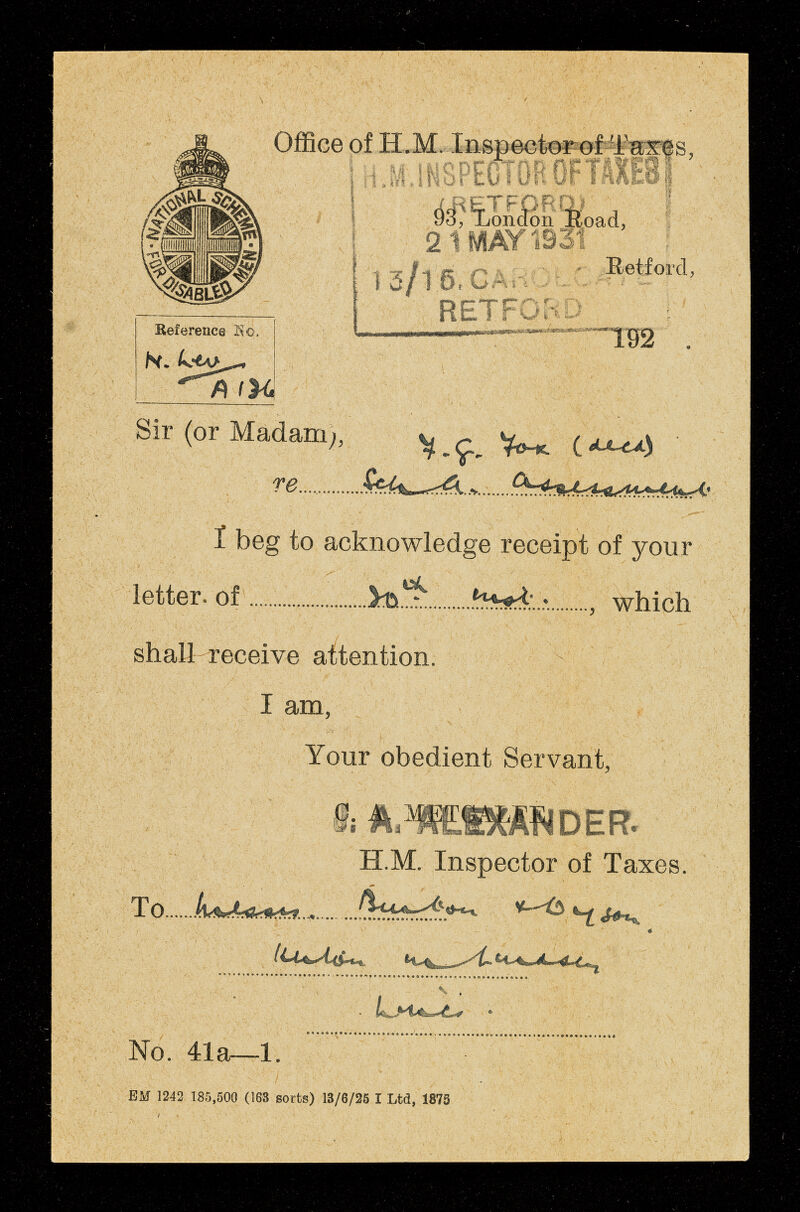 NATIONAL SCHEME
FOR DISABLED MEN
Office of H.M. Inspector of Taxes,
H.M. INSPECTOR OF TAXES
(RETFORD)
93, London Road,
21 MAY 1931
Retford,
13/15, CAROLGATE
RETFORD
192 .
Reference No.
N. Lev
A 136
Sir (or Madam),
Y. G. Fox (decd)
re Sch A. Assessment
I beg to acknowledge receipt of your
letter of 20th inst., which
shall receive attention.
I am,
Your obedient Servant,
C. A. METCALFE
ALEXANDER.
H.M. Inspector of Taxes.
To Messrs. Burton & Dyson
Kirton in Lindsey
Lincs.
No. 41a—1.
EM 1242 185,500 (163 sorts) 13/6/25 I Ltd, 1875